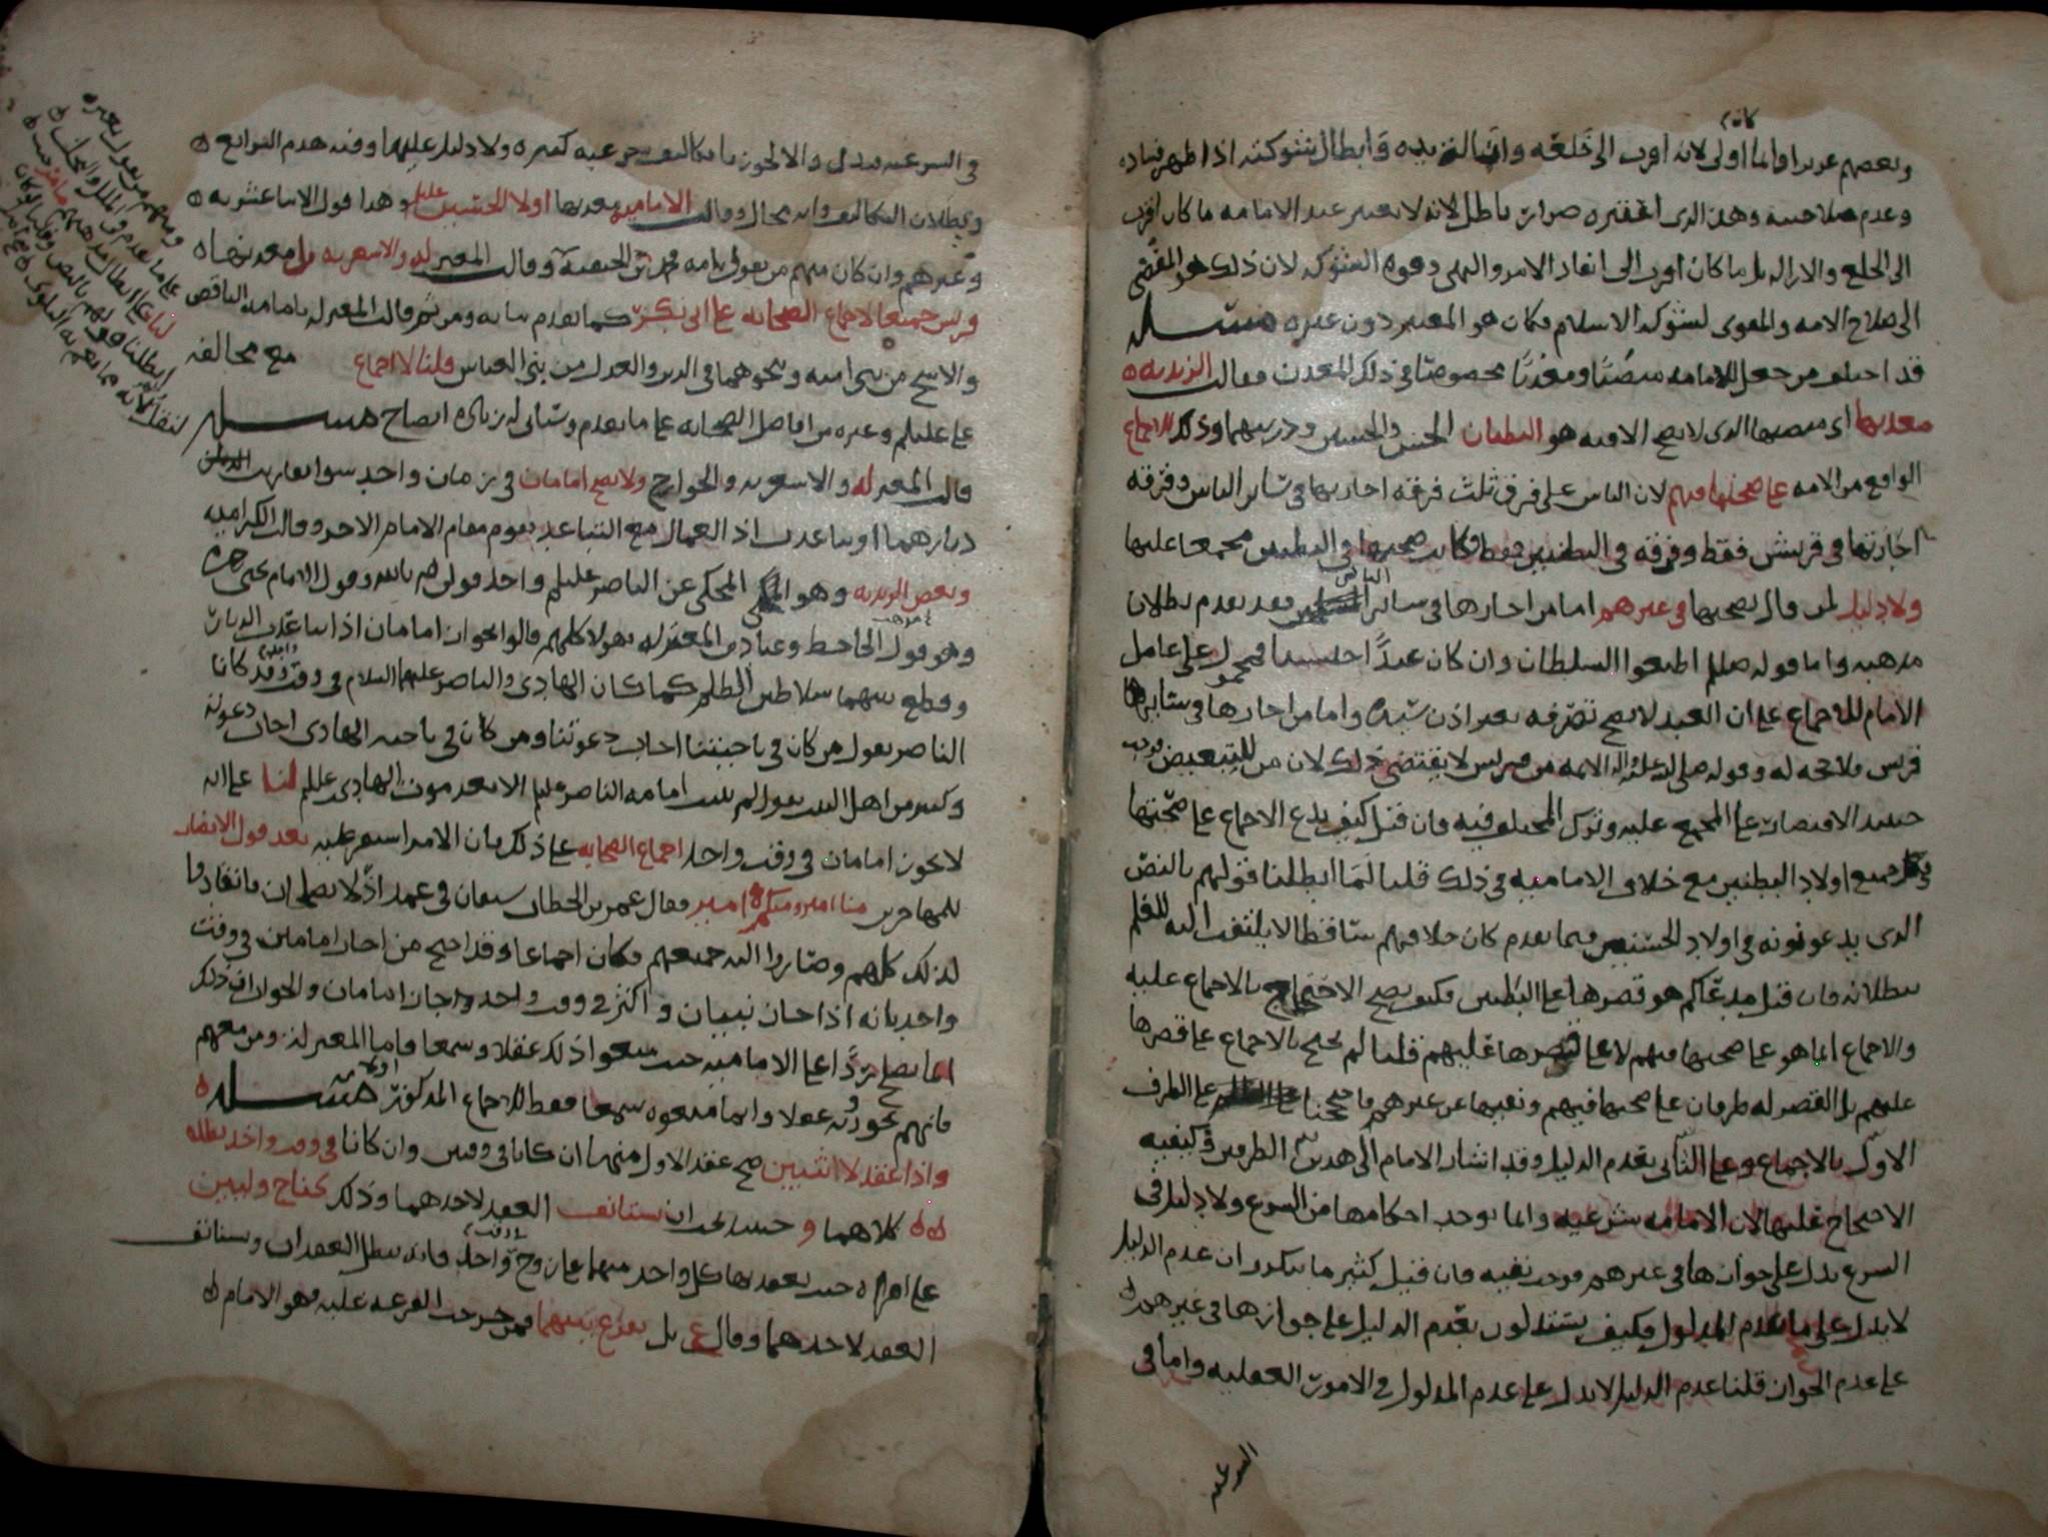 كان
وبعضهم عربيا وانما اولى لانه اقرب الى خلعه وازالة يده وابطال شوكته اذا ظهر فساده
وعدم صلاحيته وهذا الذي اعتبره ضرار باطل لانه لا يعتبر عند الامامه ما كان اقرب
الى الخلع والازاله بل ما كان اقرب الى انفاذ الامر والنهي وقوة الشوكه لان ذلك هو المفضي
الى صلاح الامه والمقوي لشوكه الاسلام فكان هو المعتبر دون غيره مسئله
قد اختلف من جعل للامامه منصبا ومعدنا مخصوصا في ذلك المعدن فقالت الزيديه
معدنها اي منصبها الذي لا يصح الا فيه هو البطنان الحسن والحسين وذريتهما وذلك للاجماع
الواقع من الامه على صحتها فيهم لان الناس على فرق ثلث فرقه اجازتها في سائر الناس وفرقه
اجازتها في قريش فقط وفرقه في البطنين فقط فكانت صحتها في البطنين مجمعا عليها
ولا دليل لمن قال بصحتها في غيرهم اما من اجازها في سائر الناس فقد تقدم بطلان
مذهبه واما قوله صلعم اطيعوا السلطان وان كان عبدا حبشيا فمحمول على عامل
الامام للاجماع على ان العبد لا يصح تصرفه بغير اذن سيده واما من اجازها في سائر
قريش فلا حجه له وقوله صلى الله عليه واله الائمه من قريش لا يقتضي ذلك لان من للتبعيض فوجب
حينئذ الاقتصار على المجمع عليه وترك المختلف فيه فان قيل كيف يدع الاجماع على صحتها
في جميع اولاد البطنين مع خلاف الاماميه في ذلك قلنا لما ابطلنا قولهم بالنص
الذي يدعونه في اولاد الحسين فيما تقدم كان خلافهم ساقطا لا يلتفت اليه للعلم
ببطلانه فان قيل مدعاكم هو قصرها على البطنين فكيف يصح الاحتجاج بالاجماع عليه
والاجماع انما هو على صحتها فيهم لا على قصرها عليهم قلنا لم نحتج بالاجماع على قصرها
عليهم بل القصر له طرفان على صحتها فيهم ونفيها عن غيرهم فاحتججنا على الطرف
الاول بالاجماع وعلى الثاني بعدم الدليل وقد اشار الامام الى هذين الطرفين في كيفيه
الاحتجاج عليها لان الامامه شرعيه وانما توجد احكامها من الشرع ولا دليل في
الشرع يدل على جوازها في غيرهم فوجب نفيه فان قيل كثير ما تذكرون ان عدم الدليل
لا يدل على عدم المدلول فكيف يستدلون بعدم الدليل على جوازها في غيرهم
على عدم الجواز قلنا عدم الدليل لا يدل على عدم المدلول في الامور العقليه واما في
الشرعيه
في الشرعيه فيدل والا لجوزنا تكاليف شرعيه كثيره ولا دليل عليها وفيه هدم الشرائع
وبطلان التكاليف وانه محال وقالت الاماميه معدنها اولاد الحسين عليلم وهذا قول الاثنا عشريه
وغيرهم وان كان منهم من يقول بامامه محمد بن الحنفيه وقالت المعتزله والاشعريه بل معدنها
قريش جميعا لاجماع الصحابه على ابي بكر كما تقدم بيانه ومن ثم قالت المعتزله بامامه الناقص
والاشج من بني اميه ونحوهما في الدين والعدل من بني العباس قلنا لا اجماع مع مخالفه
علي عليلم وغيره من افاضل الصحابه على ما تقدم وسياتي له زياده ايضاح مسئله
قالت المعتزله والاشعريه والخوارج ولا يصح امامان في زمان واحد سوا تقاربت
ديارهما او تباعدت اذ العمال مع التباعد يقوم مقام الامام الاخر وقالت الكراميه
وبعض الزيديه وهو المحكي عن الناصر عليلم واحد قولي م بالله وقول الامام يحيى
وهو قول الجاحظ وعباد من المعتزله فهولا كلهم قالوا يجوز امامان اذا تباعدت الديار
وقطع بينهما سلاطين الظلم كما كان الهادي والناصر عليهما السلام في وقت واحد وقد كانا
الناصر يقول من كان في ناحيتنا اجاب دعوتنا ومن كان في ناحيه الهادي اجاب دعوته
وكثير من اهل البيت يقول لم تثبت امامه الناصر عليلم الا بعد موت الهادي عليلم لنا على انه
لا يجوز امامان في وقت واحد اجماع الصحابه على ذلك بان الامر استقر عليه بعد قول الانصار
للمهاجرين منا امير ومنكم امير فقال عمر بن الخطاب سيفان في غمد اذا لا يصطلحان فانقادوا
لذلك كلهم وصاروا اليه جميعهم فكان اجماعا وقد احتج من اجاز امامين في وقت
واحد بانه اذا جاز نبيان واكثر في وقت واحد جاز امامان والجواب ان ذلك
انما يصلح ردا على الاماميه حيث منعوا ذلك عقلا وسمعا فاما المعتزله ومن معهم
فانهم يجوزونه عقلا وانما منعوه سمعا فقط للاجماع المذكور مسئله
واذا عقد لاثنين صح عقد الاول منهما ان كانا في وقتين وان كانا في وقت واحد بطلا
كلاهما وحينئذ يجب ان يستانف العقد لاحدهما وذلك كناح وليين
على امراه حيث يعقد بها كل واحد منهما على زوج في وقت واحد فانه يبطل العقدان ويستانف
العقد لاحدهما وقال بل يقرع بينهما فمن خرجت القرعه عليه فهو الامام
ومنهم من يقول بغيره
لنا على ابطال مذهبهم
ابطلنا قولهم بالنص